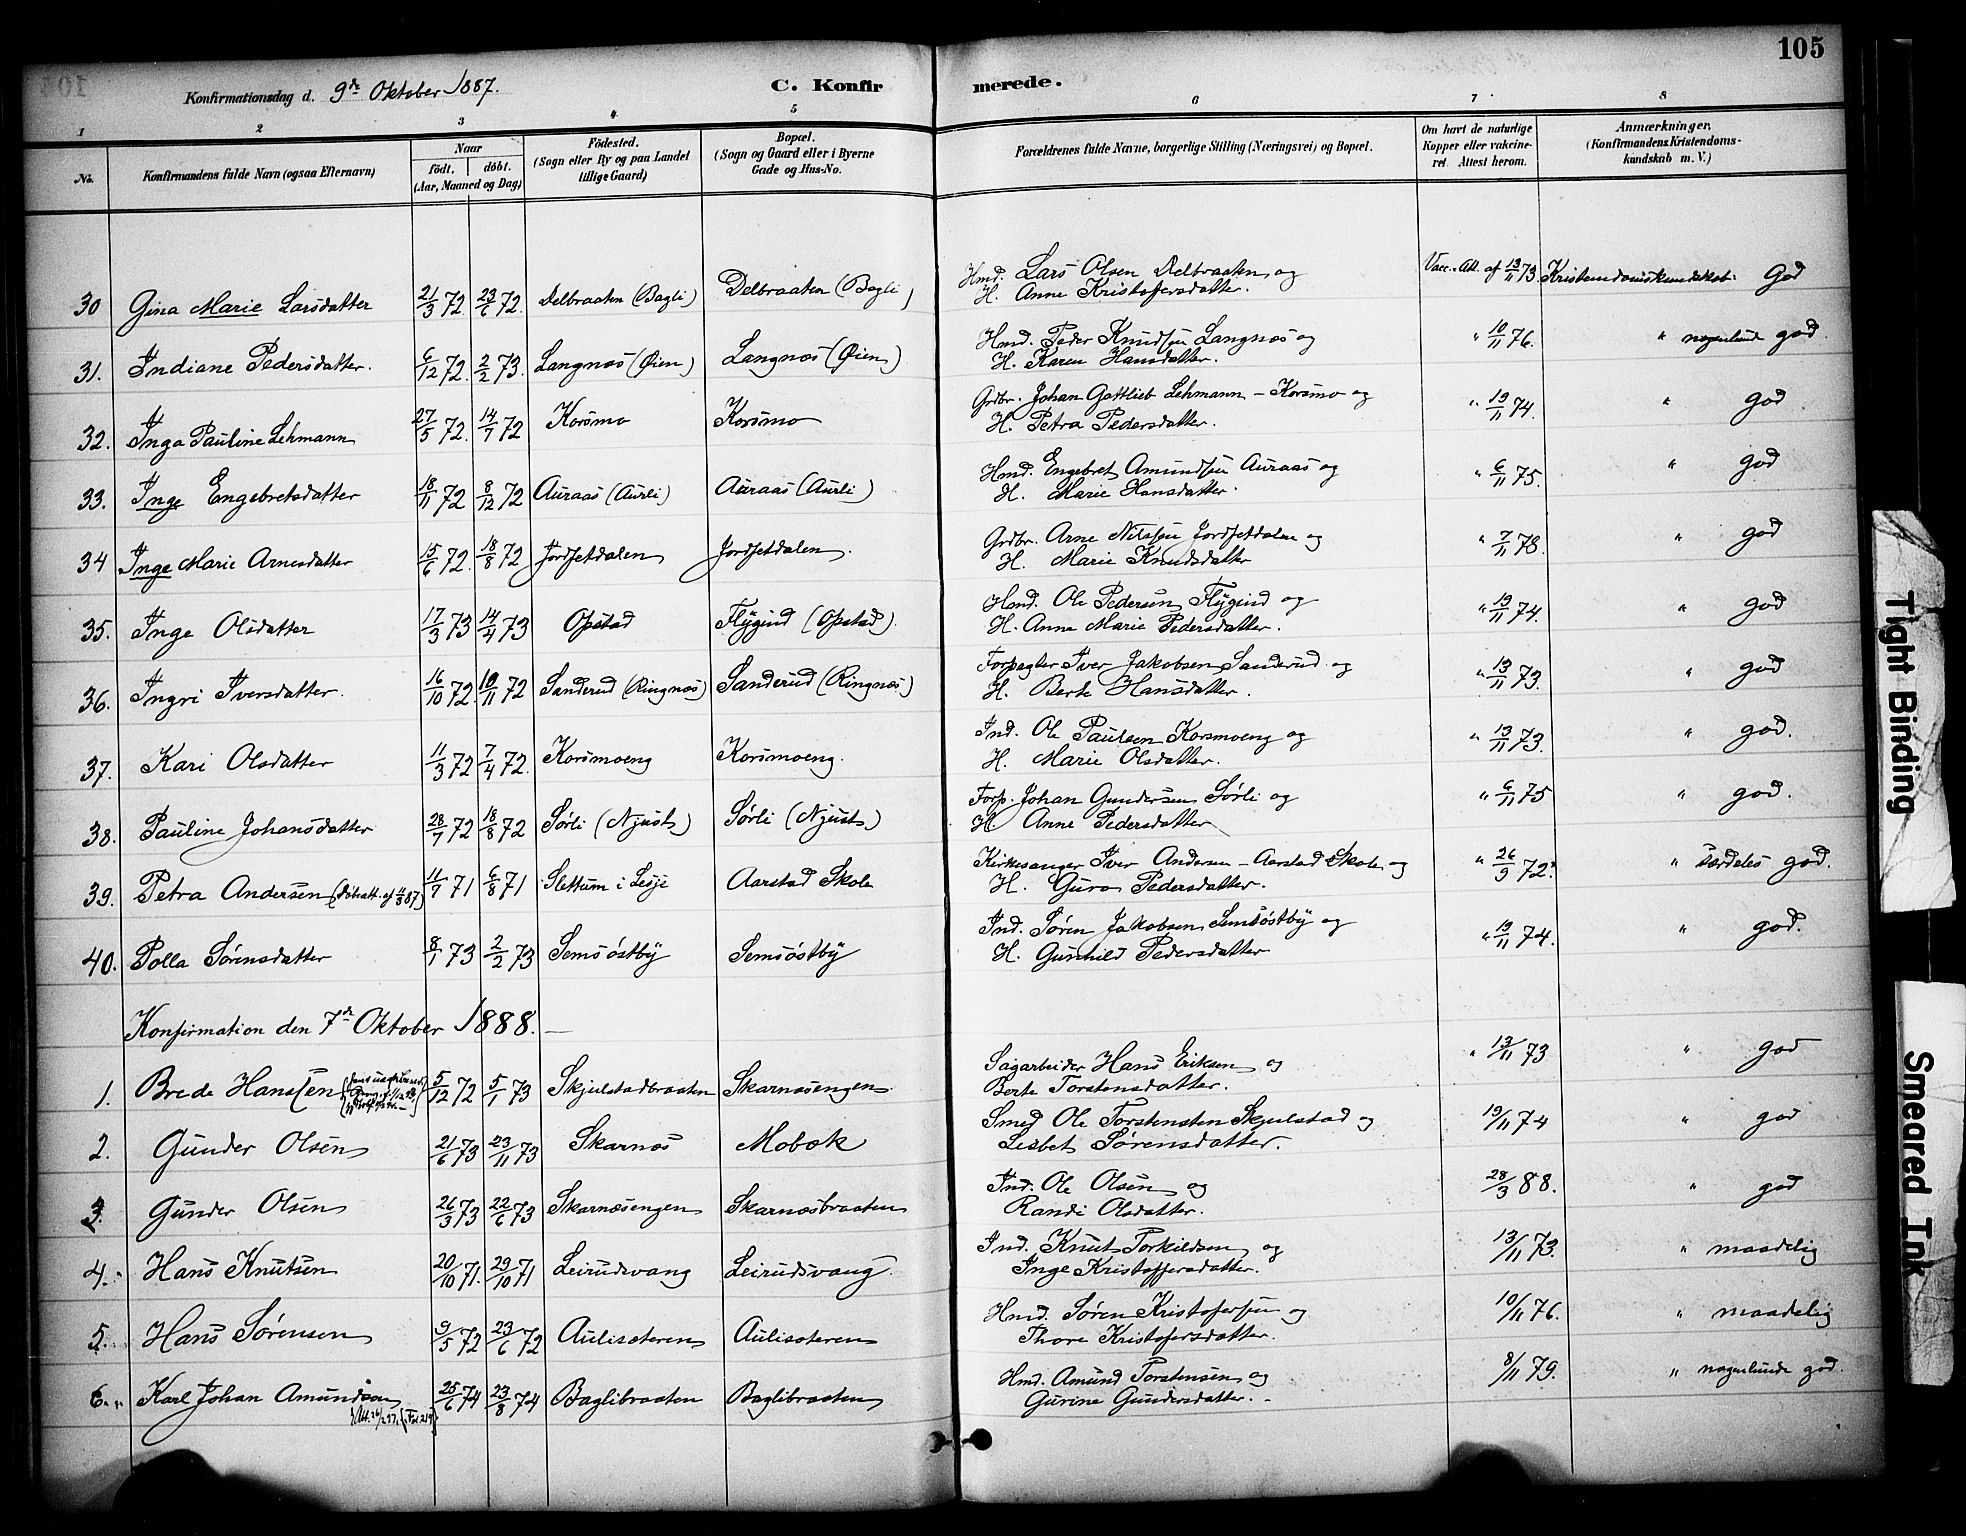 105
Konfirmationsdag d. 9de Oktober 1887. C. Konfirmerede.
1 2 3 4 5 6 7 8
No. Konfirmandens fulde Navn (ogsaa Efternavn) Naar født. døbt. (Aar, Maaned og Dag) Födested. (Sogn eller By og paa Landet tillige Gaard) Bopæl. (Sogn og Gaard eller i Byerne Gade og Hus-No. Forældrenes fulde Navne, borgerlige Stilling (Næringsvei) og Bopæl. Om havt de naturlige Kopper eller vakcineret. Attest herom. Anmærkninger. (Konfirmandens Kristendomskundskab m. V.)
30 Gina Marie Larsdatter 21/3 72 23/6 72. Delbraaten (Bagli) Delbraaten (Bagli) Hmd. Lars Olsen Delbraaten og Vacc. Att. af 13/11 73. Kristendomskundskab: God
H. Anne Kristoffersdatter.
31. Indiane Pedersdatter. 6/12 72. 2/2 73. Langnæs (Øien) Langnæs (Øien) Hmd. Peder Knudsen Langnæs og " 10/11 76. " nogenlunde god.
H. Karen Hansdatter.
32. Inga Pauline Lehmann 27/5 72. 14/7 72 Korsmo Korsmo Grdbr. Johan Gottlieb Lehmann - Korsmo og " 19/11 74. " god
H. Petra Pedersdatter.
33. Inge Engebretsdatter 18/11 72 8/12 72 Auraas (Aurli) Auraas (Aurli) Hmd. Engebret Amundsen Auraas og " 6/11 75. " god
H. Marie Hansdatter.
34 Inge Marie Arnesdatter 15/6 72. 18/8 72 Jordsetdalen Jordsetdalen. Grdbr. Arne Nilssen Jordsetdalen og " 7/11 78. " god
H. Marie Knudsdatter
35. Inge Olsdatter 17/3 73 14/4 73 Opstad Flygind (Opstad). Hmd. Ole Pedersen Flygind og " 19/11 74. " god
H. Anne Marie Pedersdatter.
36. Ingri Iversdatter. 16/10 72. 10/11 72 Sanderud (Ringnæs) Sanderud (Ringnæs) Forpagter Iver Jakobsen Sanderud og " 13/11 73. " god
H. Berte Hansdatter.
37. Kari Olsdatter 11/3 72 7/4 72. Korsmoeng Korsmoeng. Ind. Ole Paulsen Korsmoeng og " 13/11 73. " god.
H. Marie Olsdatter.
38. Pauline Johansdatter 28/7 72 18/8 72 Sørli (Njust) Sørli (Njust) Forp. Johan Gundersen Sørli og " 6/11 75 " god.
H. Anne Pedersdatter
39. Petra Andersen 11/7 71 6/8 71 Slettum i Lesje Aarstad Skole Kirkesanger Iver Andersen - Aarstad Skole og " 26/9 72. " særdeles god.
H. Guro Pedersdatter.
40. Polla Sørensdatter 8/1 73 2/2 73 Semsöstby Semsöstby Ind. Søren Jakobsen Semsöstby og " 19/11 74. " god.
H. Gunhild Pedersdatter
Konfirmation den 7de Oktober 1888.
1. Brede Hanssen 5/12 72 5/1 73 Skjulstadbraaten Skarnæsengen Sagarbeider Hans Eriksen og " 13/11 73 " god
Berte Torstensdatter.
2. Gunder Olsen 21/6 73 23/11 73 Skarnæs Mobæk Smed Ole Torstensten Skjulstad og 19/11 74 " god
Lisbet Sørensdatter.
3. Gunder Olsen 26/3 73 22/6 73 Skarnæsengen Skarnæsbraaten Ind. Ole Olsen og 28/3 88. " god
Randi Olsdatter.
4. Hans Knutsen 20/10 71. 29/10 71 Leirudsvang Leirudsvang. Ind. Knut Torkildsen og 13/11 73. " maadelig
Inge Kristoffersdatter.
5. Hans Sørensen 9/5 72 23/6 72 Aulisæteren Aulisæteren Hmd. Søren Kristofersen og 10/11 76. " maadelig
Thore Kristofersdatter.
6. Karl Johan Amundsen 25/6 74 23/8 74 Baglibraaten Baglibraaten Hmd. Amund Torstensen og 8/11 79. " nogenlunde god.
Gurine Gundersdatter.
Tight Binding
Smeared Ink